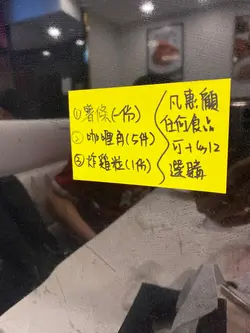 ①薯條(一份)
②咖哩角(5件)
③炸雞粒(1份)
凡惠顧
任何食品
可+$12
選購